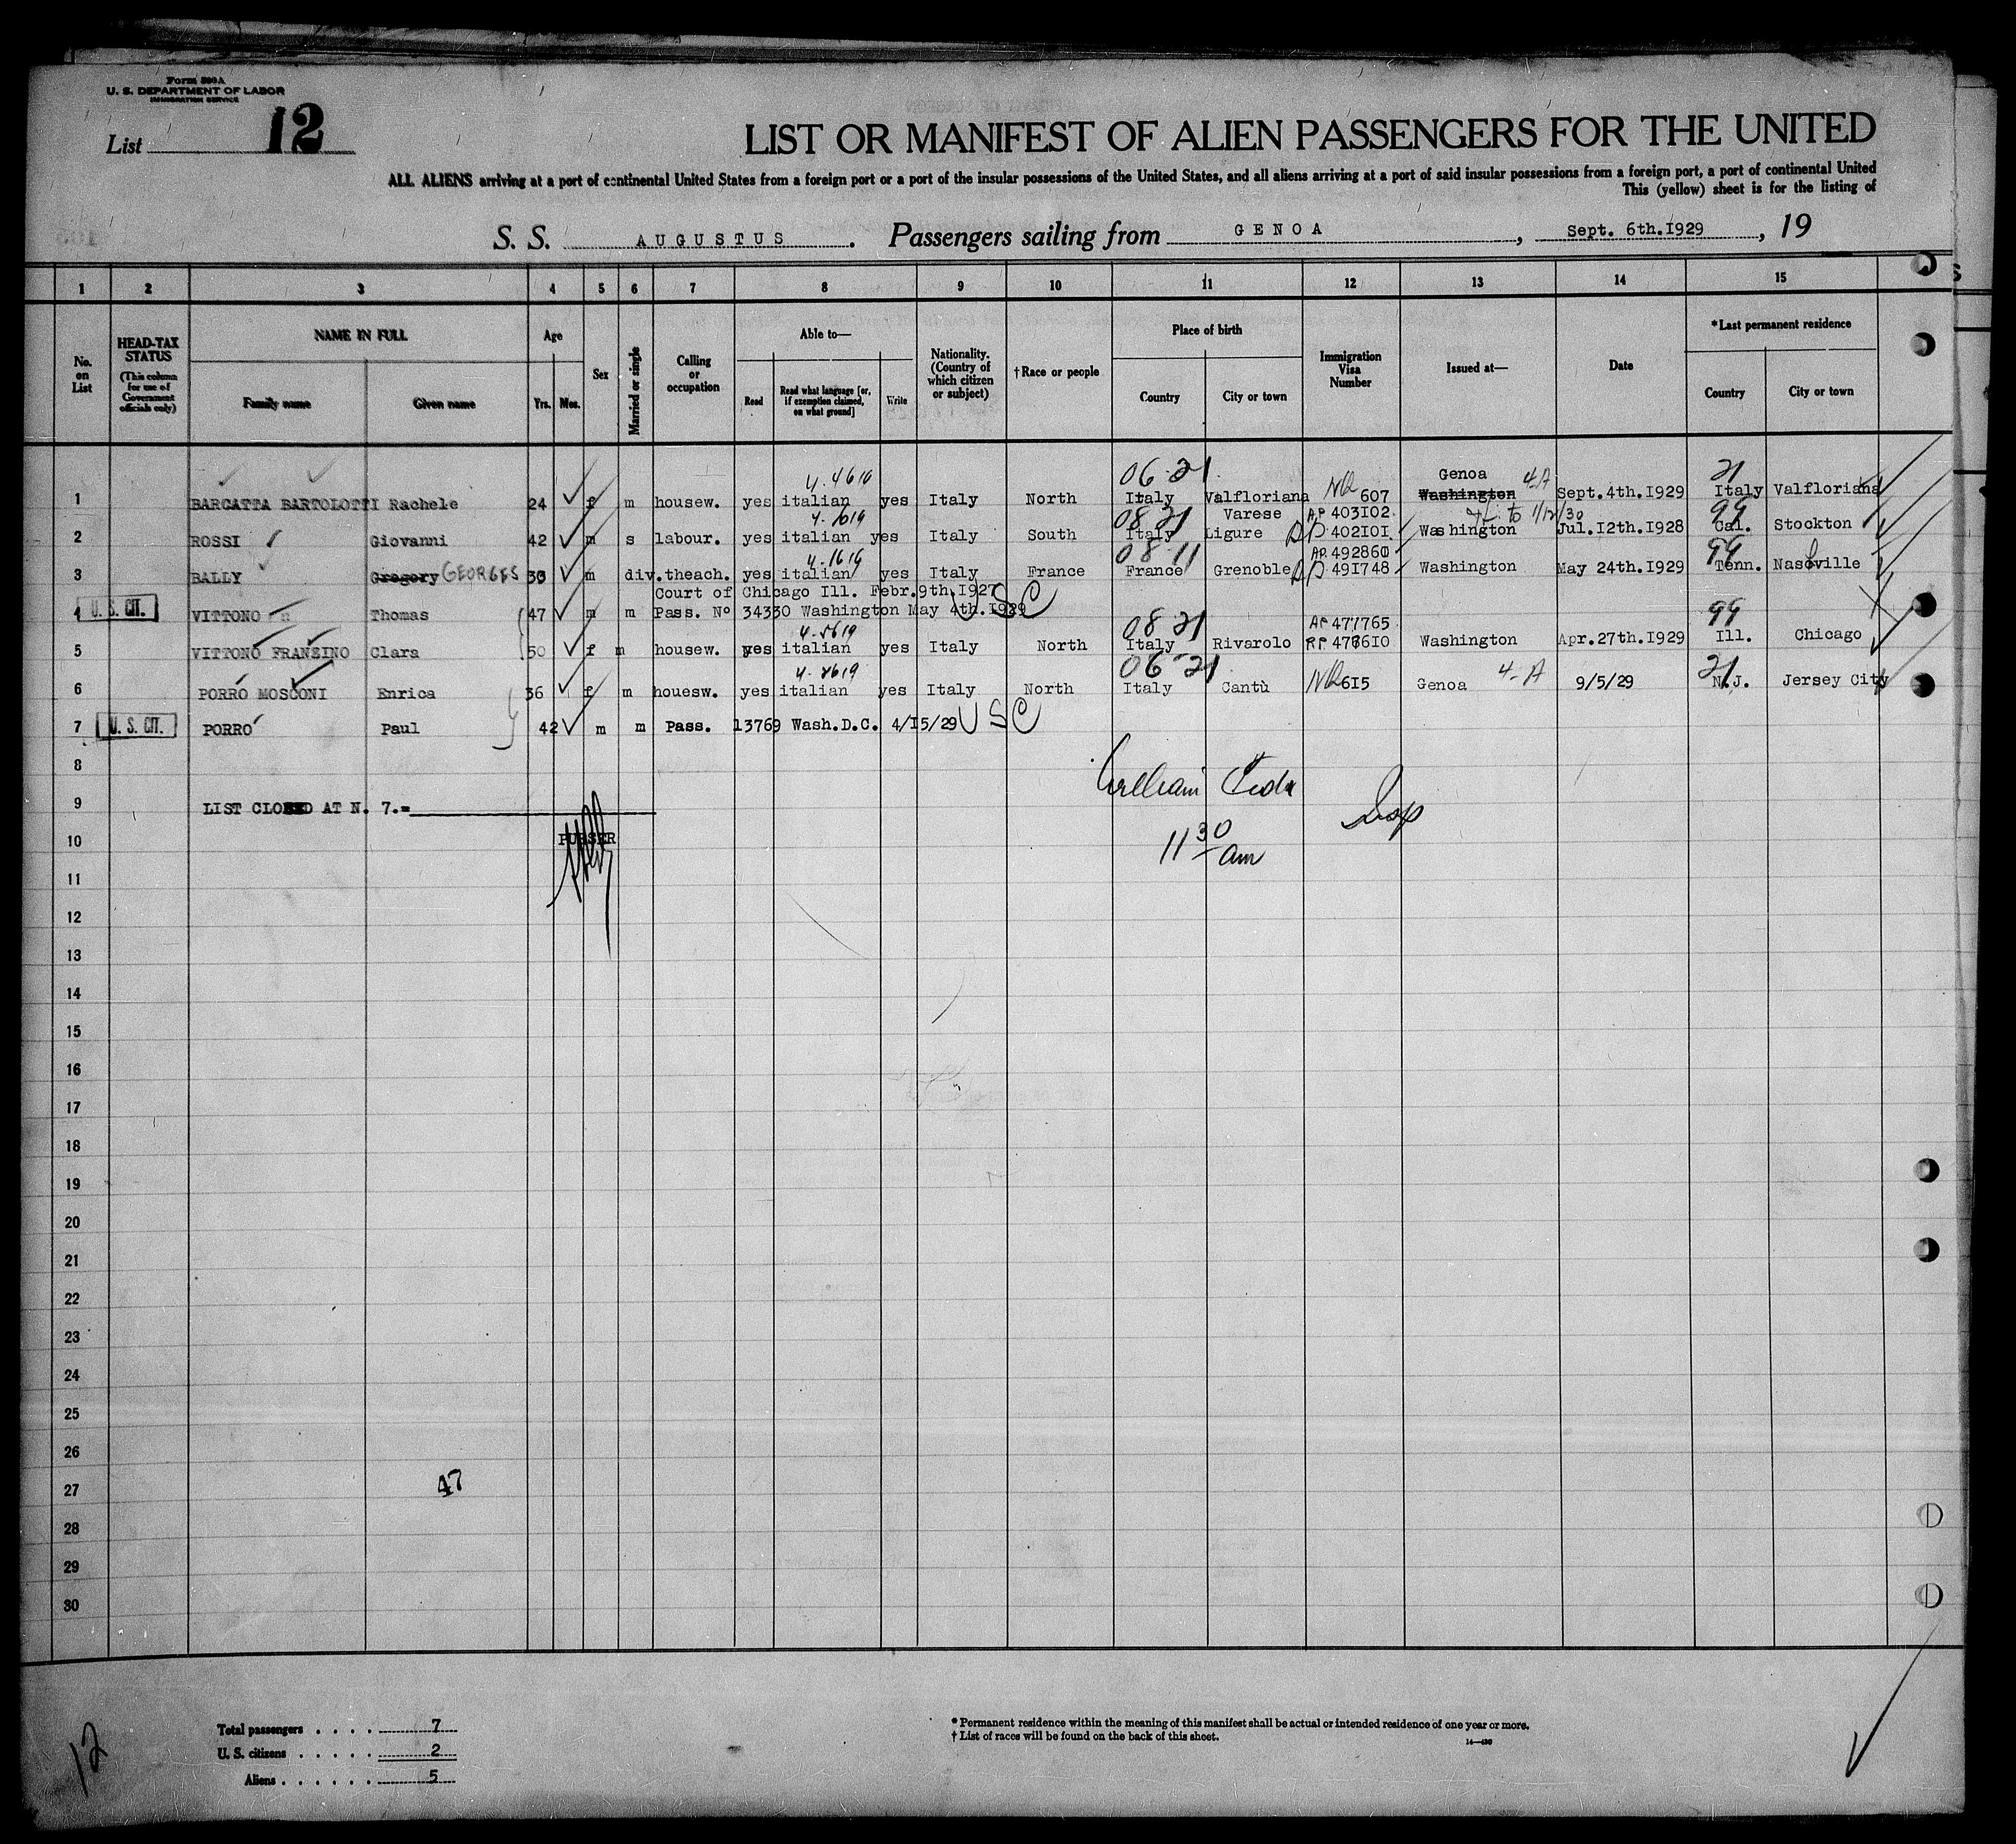 Form 500A
U. S. DEPARTMENT OF LABOR
IMMIGRATION SERVICE
List 12
LIST OR MANIFEST OF ALIEN PASSENGERS FOR THE UNITED
ALL ALIENS arriving at a port of continental United States from a foreign port or a port of the insular possessions of the United States, and all aliens arriving at a port of said insular possessions from a foreign port, a port of continental United
This (yellow) sheet is for the listing of
S. S. AUGUSTUS. Passengers sailing from GENOA, Sept. 6th.1929, 19
1 2 3 4 5 6 7 8 9 10 11 12 13 14 15
No. on List
HEAD-TAX STATUS (This column for use of Government officials only)
NAME IN FULL Family name Given name
Age Yrs. Mos.
Sex
Married or single
Calling or occupation
Able to— Read Read what language [or, if exemption claimed, on what ground] Write
Nationality. (Country of which citizen or subject)
† Race or people
Place of birth Country City or town
Immigration Visa Number
Issued at—
Date
*Last permanent residence Country City or town
4-4610 06-21 Genoa 4-A 21
1 BARCATTA BARTOLOTTI Rachele 24 f m housew. yes italian yes Italy North Italy Valfloriana NQ 607 Washington Sept.4th.1929 Italy Valfloriana
4-1619 08-21 Varese AP 403102 to 1/12/30 99
2 ROSSI Giovanni 42 m s labour. yes italian yes Italy South Italy Ligure RP 402101 Washington Jul.12th.1928 Cal. Stockton
4-1619 08-11 AP 492860 99
3 BALLY Gregory GEORGES 30 m div.theach. yes italian yes Italy France France Grenoble RP 491748 Washington May 24th.1929 Tenn. Nasoville
Court of Chicago Ill. Febr.9th.1927
4 U. S. CIT. VITTONO Thomas 47 m m Pass. Nº 34330 Washington May 4th.1929 USC
4-5619 08-21 AP 477765 99
5 VITTONO FRANZINO Clara 50 f m housew. yes italian yes Italy North Italy Rivarolo RP 478610 Washington Apr.27th.1929 Ill. Chicago
4-2619 06-21 4-A 21
6 PORRO MOSCONI Enrica 36 f m houesw. yes italian yes Italy North Italy Cantù NQ 615 Genoa 9/5/29 N.J. Jersey City
7 U. S. CIT. PORRO Paul 42 m m Pass. 13769 Wash.D.C. 4/15/29 USC
8
William
9 LIST CLOSED AT N. 7.=
Insp
10 PURSER
11 30 am
11
12
13
14
15
16
17
18
19
20
21
22
23
24
25
26
27 47
28
29
30
Total passengers . . . . 7
U. S. citizens . . . . . 2
Aliens . . . . . . 5
* Permanent residence within the meaning of this manifest shall be actual or intended residence of one year or more.
† List of races will be found on the back of this sheet.
12